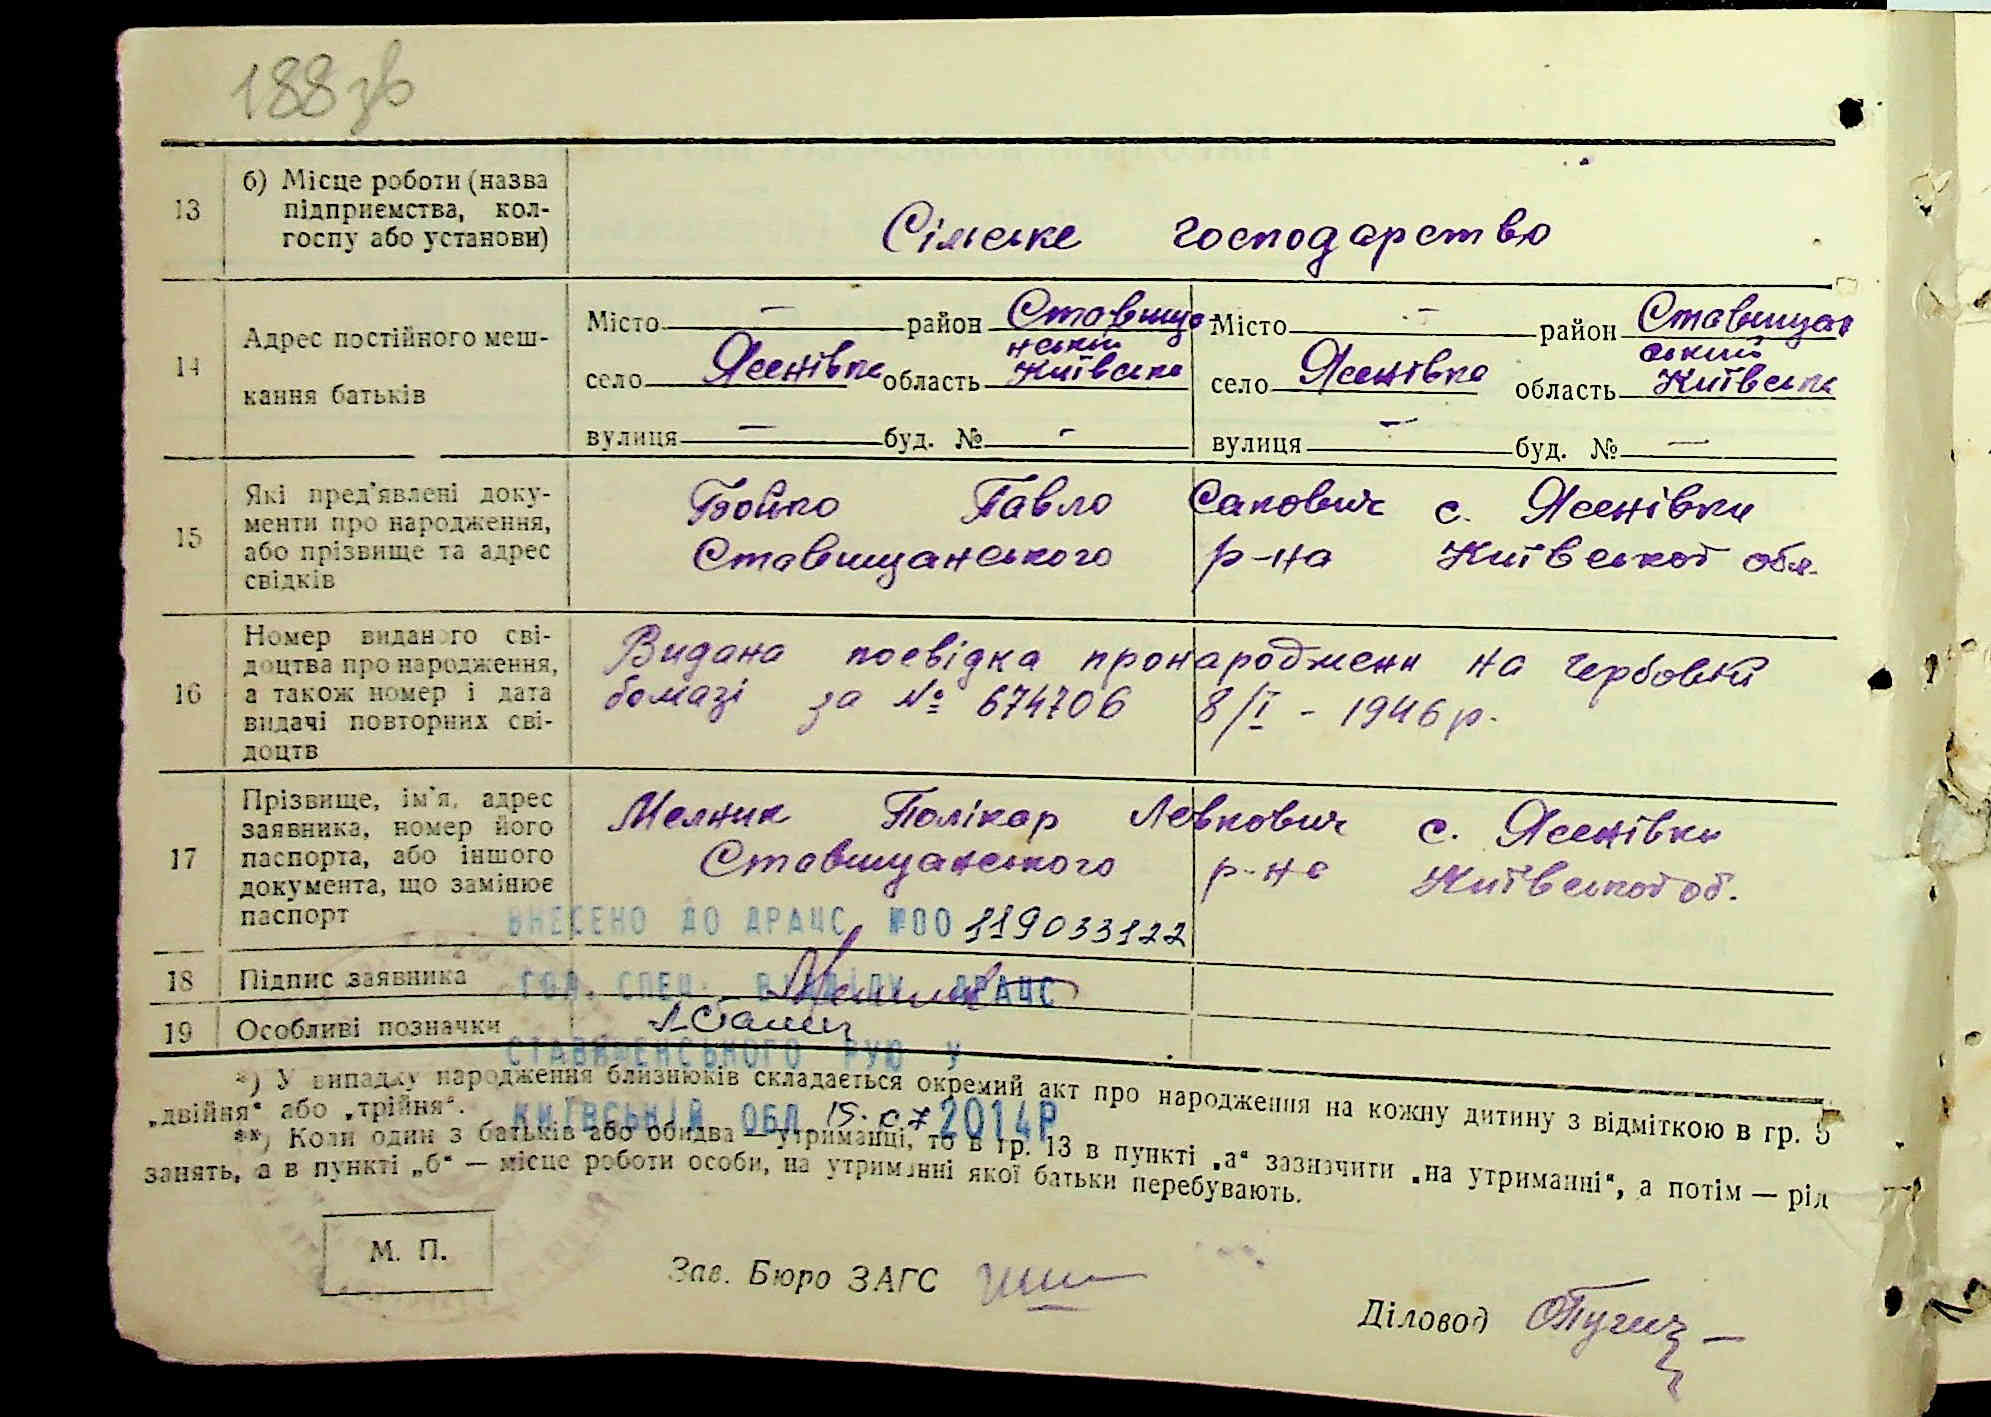 188зв
13 б) Місце роботи (назва
підприємства, кол-
госпу або установи)
Сільське господарство
14 Адрес постійного меш-
кання батьків
Місто — район Ставищан
ський
село Ясенівка область Київська
вулиця — буд. № -
Місто - район Ставищан
ський
село Ясенівка область Київська
вулиця — буд. № —
15 Які пред'явлені доку-
менти про народження,
або прізвище та адрес
свідків
Бойко Павло Сакович с. Ясенівки
Ставищанського р-на Київської обл.
16 Номер виданого сві-
доцтва про народження,
а також номер і дата
видачі повторних сві-
доцтв
Видана посвідка про народженн на гербовій
бомазі за № 674706 8/I - 1946 р.
17 Прізвище, ім'я, адрес
заявника, номер його
паспорта, або іншого
документа, що замінює
паспорт
Мелник Полікар Левкович с. Ясенівки
Ставищанського р-на Київської об.
ВНЕСЕНО ДО ДРАЦС №00 119033122
18 Підпис заявника
ГОЛ. СПЕЦ. ВІДДІЛУ ДРАЦС
19 Особливі позначки
СТАВИЩЕНСЬКОГО РУЮ У
КИЇВСЬКІЙ ОБЛ. 15.07 2014Р
*) У випадку народження близнюків складається окремий акт про народження на кожну дитину з відміткою в гр. 5
„двійня“ або „трійня“.
**) Коли один з батьків або обидва — утриманці, то в гр. 13 в пункті „а“ зазначити „на утриманні“, а потім — рід
занять, а в пункті „б“ — місце роботи особи, на утриманні якої батьки перебувають.
М. П.
Зав. Бюро ЗАГС
Діловод